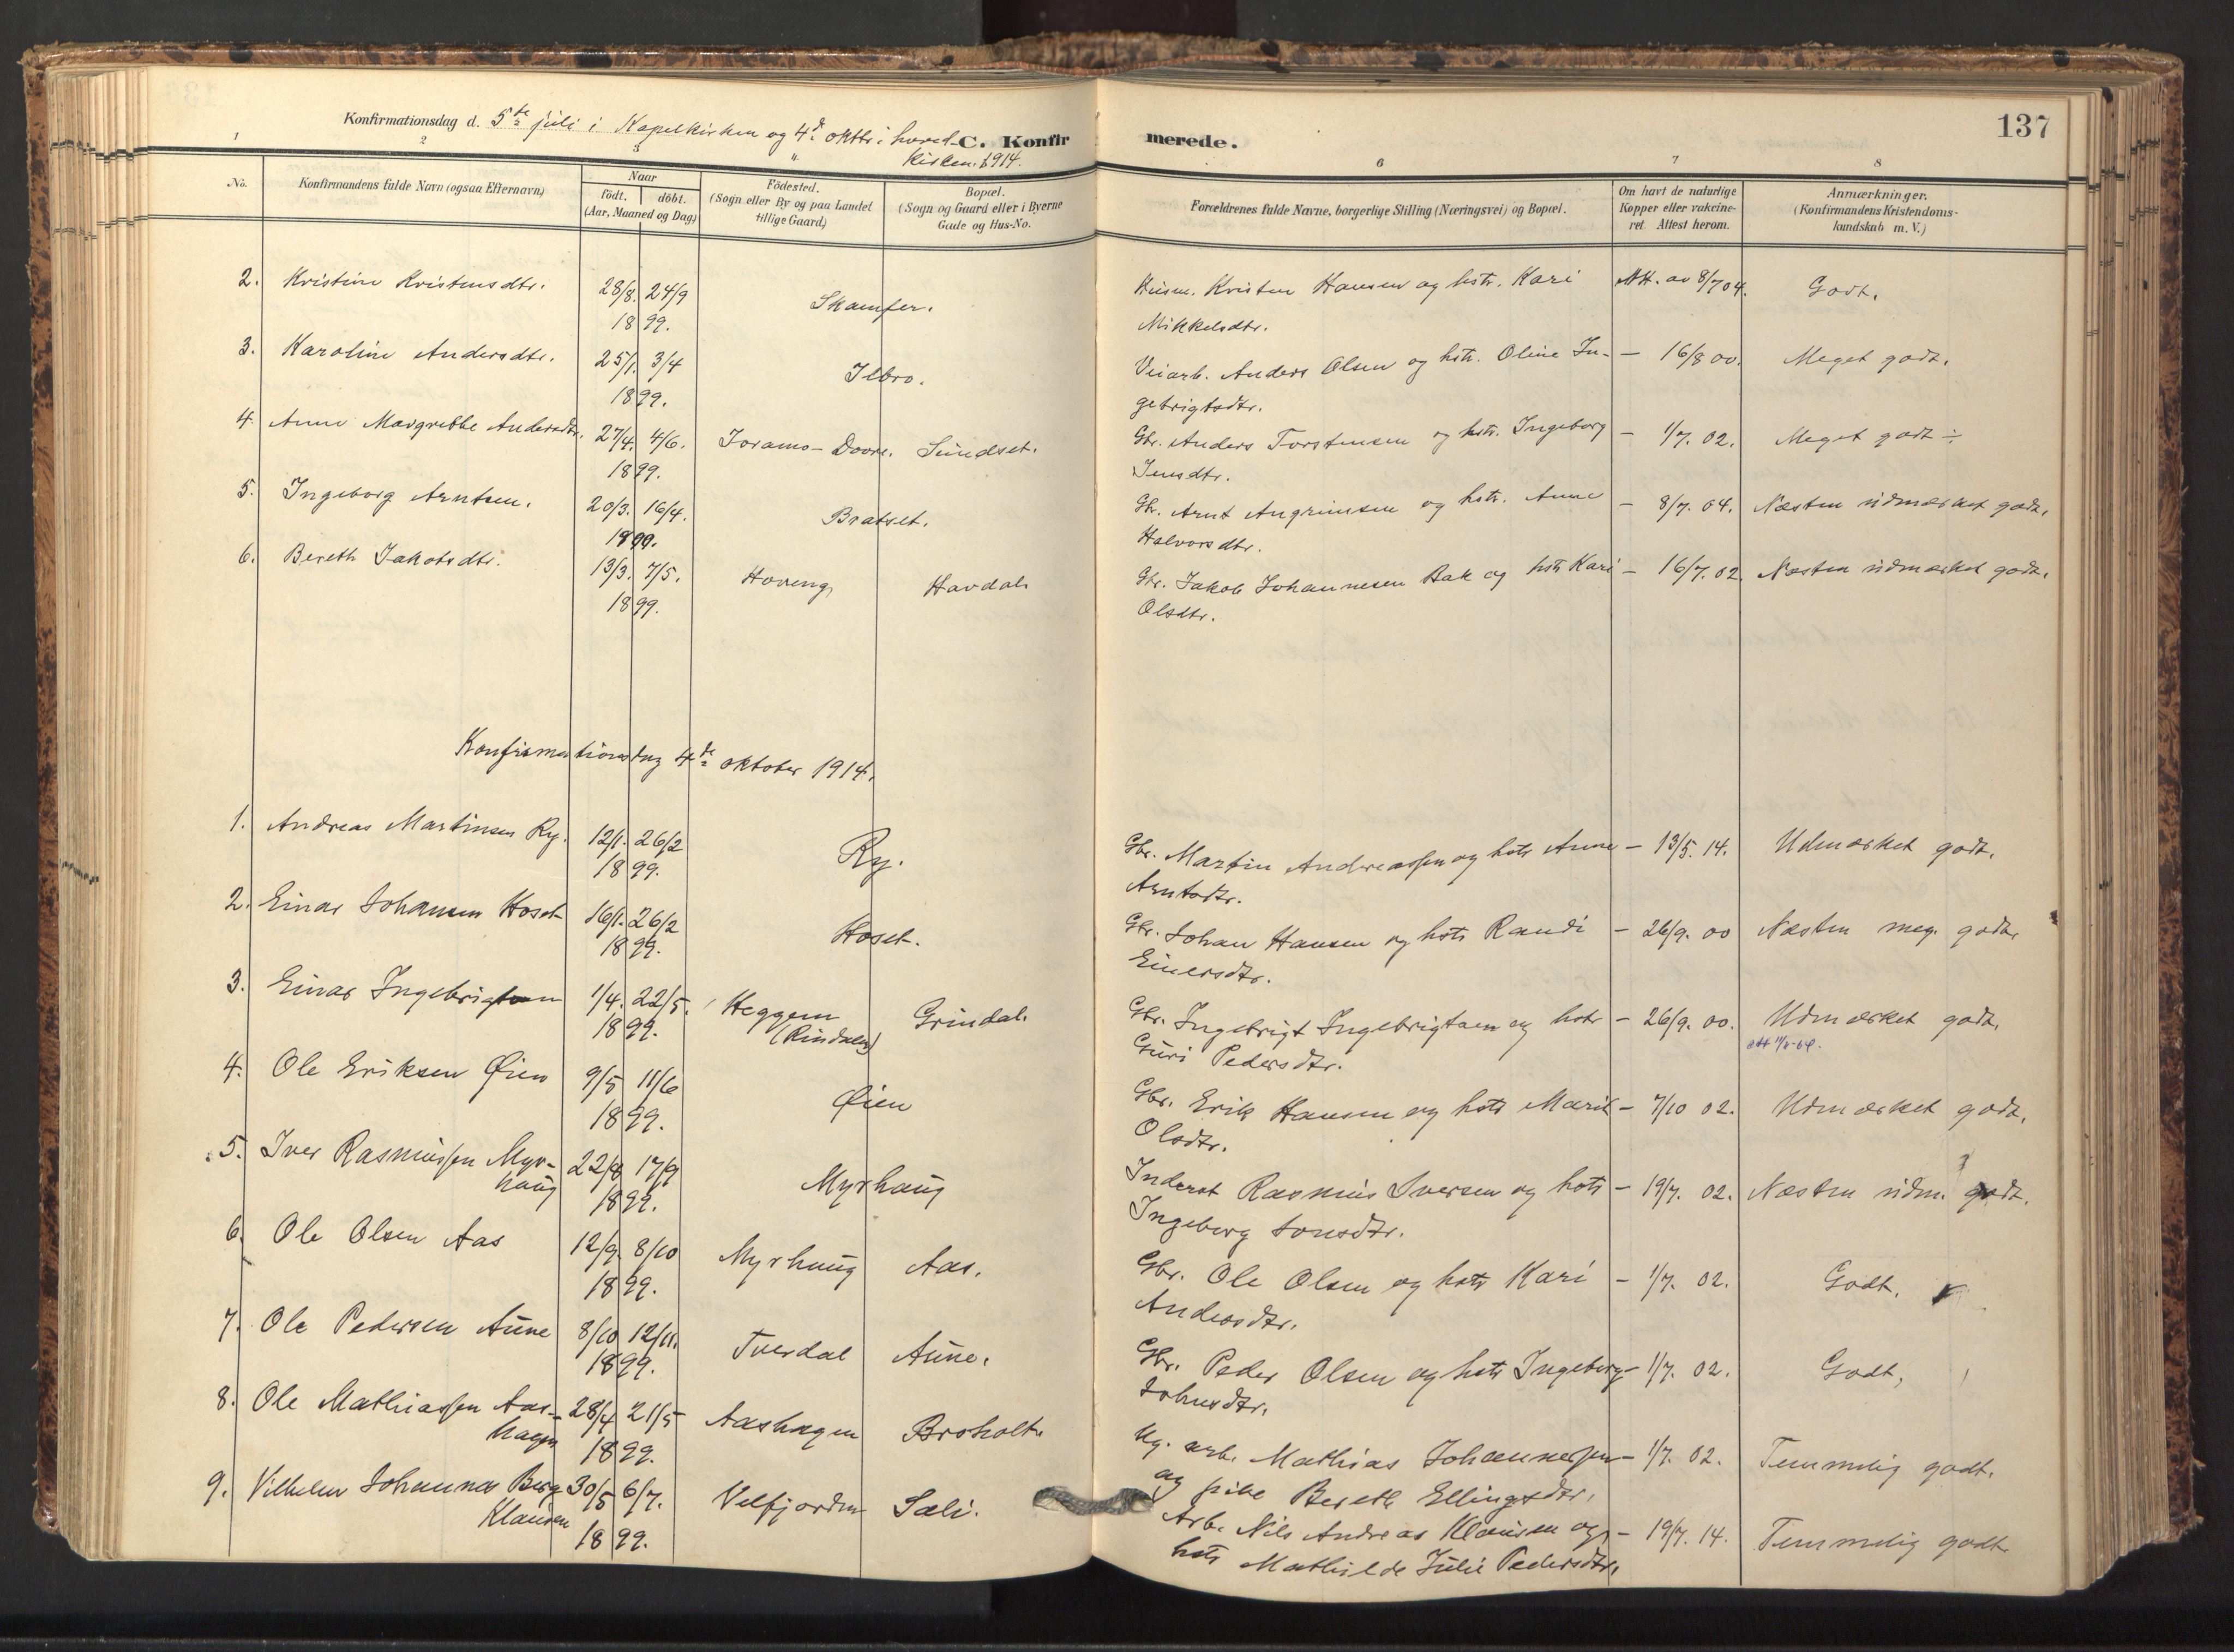 137
Konfirmationsdag d. 5te juli i Kapelkirken og 4de oktbr. i hoved-
kirken 1914.
C. Konfirmerede.
1 2 3 4 6 7 8
No.
Konfirmandens fulde Navn (ogsaa Efternavn)
Naar
födt. döbt.
(Aar, Maaned og Dag)
Födested.
(Sogn eller By og paa Landet
tillige Gaard)
Bopæl.
(Sogn og Gaard eller i Byerne
Gade og Hus-No.
Forældrenes fulde Navne, borgerlige Stilling (Næringsvei) og Bopæl.
Om havt de naturlige
Kopper eller vakcine-
ret. Attest herom.
Anmærkninger.
(Konfirmandens Kristendoms-
kundskab m. V.)
2. Kristine Kristensdtr. 28/8. 24/9 Skamfer. Husm. Kristen Hansen og hstr. Kari Att. av 8/7 04. Godt.
1899. Mikkelsdtr.
3. Karoline Andersdtr. 25/1. 3/4 Ilbro. Veiarb. Anders Olsen og hstr. Oline In- — 16/8 00. Meget godt.
1899. gebrigtsdtr.
4. Anne Margrethe Andersdtr. 27/4. 4/6. Joramo-Dovre. Sundset. Gbr. Anders Torstensen og hstr. Ingeborg — 1/7. 02. Meget godt ÷
1899. Jensdtr.
5. Ingeborg Arntsen. 20/3. 16/4. Bratset. Gbr. Arnt Angrimsen og hstr. Anne — 8/7. 04. Næsten udmærket godt.
1899. Halvorsdtr.
6. Bereth Jakobsdtr. 13/3. 7/5. Hoveng Havdal Gbr. Jakob Johannesen Bak og hstr Kari — 16/7. 02. Næsten udmærket godt.
1899. Olsdtr.
Konfirmationsdag 4de oktober 1914.
1. Andreas Martinsen Ry. 12/1. 26/2 Ry. Gbr. Martin Andreassen og hstr Anne — 13/5. 14. Udmærket godt.
1899. Arntsdtr.
2. Einar Johansen Hoset 16/1. 26/2 Hoset. Gbr. Johan Hansen og hstr Randi — 26/9. 00 Næsten meg. godt.
1899. Einersdtr.
3. Einar Ingebrigtsen 1/4. 22/5. Heggem Grindal. Gbr. Ingebrigt Ingebrigtsen og hstr — 26/9. 00. Udmærket godt.
1899. (Rindalen) Guri Pedersdtr.
4. Ole Eriksen Øien 9/5 11/6 Øien Gbr. Erik Hansen og hstr Marit — 7/10 02. Udmærket godt.
1899. Olsdtr.
5. Iver Rasmussen Myr- 22/8 17/9 Myrhaug Inderst Rasmus Iversen og hstr — 19/7. 02. Næsten udm. godt.
haug 1899. Ingeborg Tonsdtr.
6. Ole Olsen Aas 12/9. 8/10 Myrhaug Aas. Gbr. Ole Olsen og hstr Kari — 1/7. 02. Godt.
1899. Andersdtr.
7. Ole Pedersen Aune 8/10 12/11. Tverdal Aune. Gbr. Peder Olsen og hstr Ingeborg — 1/7. 02. Godt,
1899. Johnsdtr.
8. Ole Mathiassen Aas- 28/4 21/5 Aashagen Broholt Ug. arb. Mathias Johannessen — 1/7. 02. Temmelig godt.
hagen 1899. og pike Bereth Ellingsdtr.
9. Vilhelm Johannes Berg 30/5 6/7. Velfjorden Sæli. Arb. Nils Andreas Klausen og — 19/7. 14. Temmelig godt
Klausen 1899. hstr Mathilde Julie Pedersdtr.